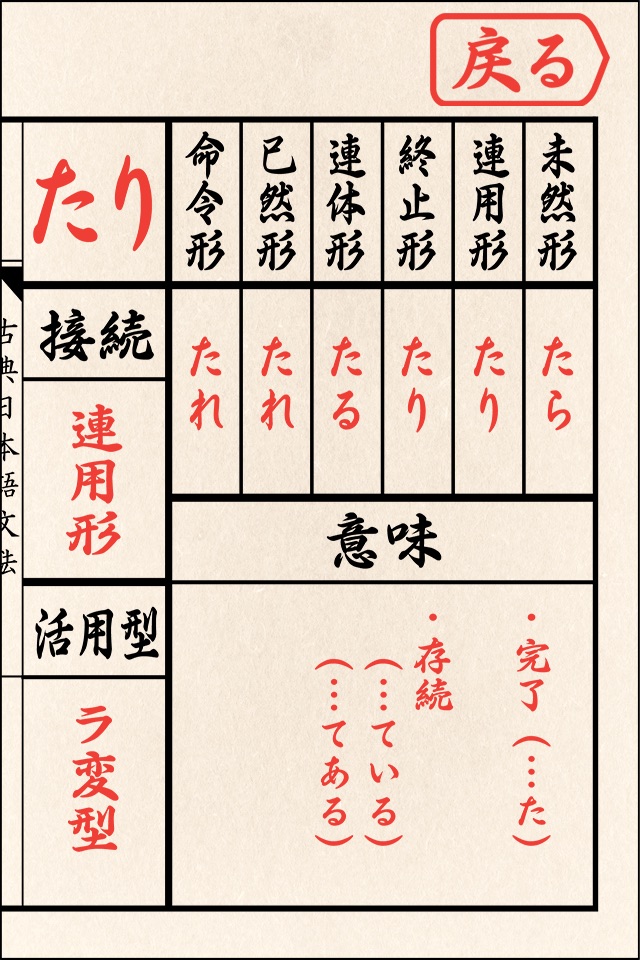 戻る
未然形
連用形
終止形
連体形
已然形
命令形
たり
たら
たり
たり
たる
たれ
たれ
接続
連用形
意味
・完了（…た）
・存続
（…ている）
（…てある）
活用型
ラ変型
古典日本語文法